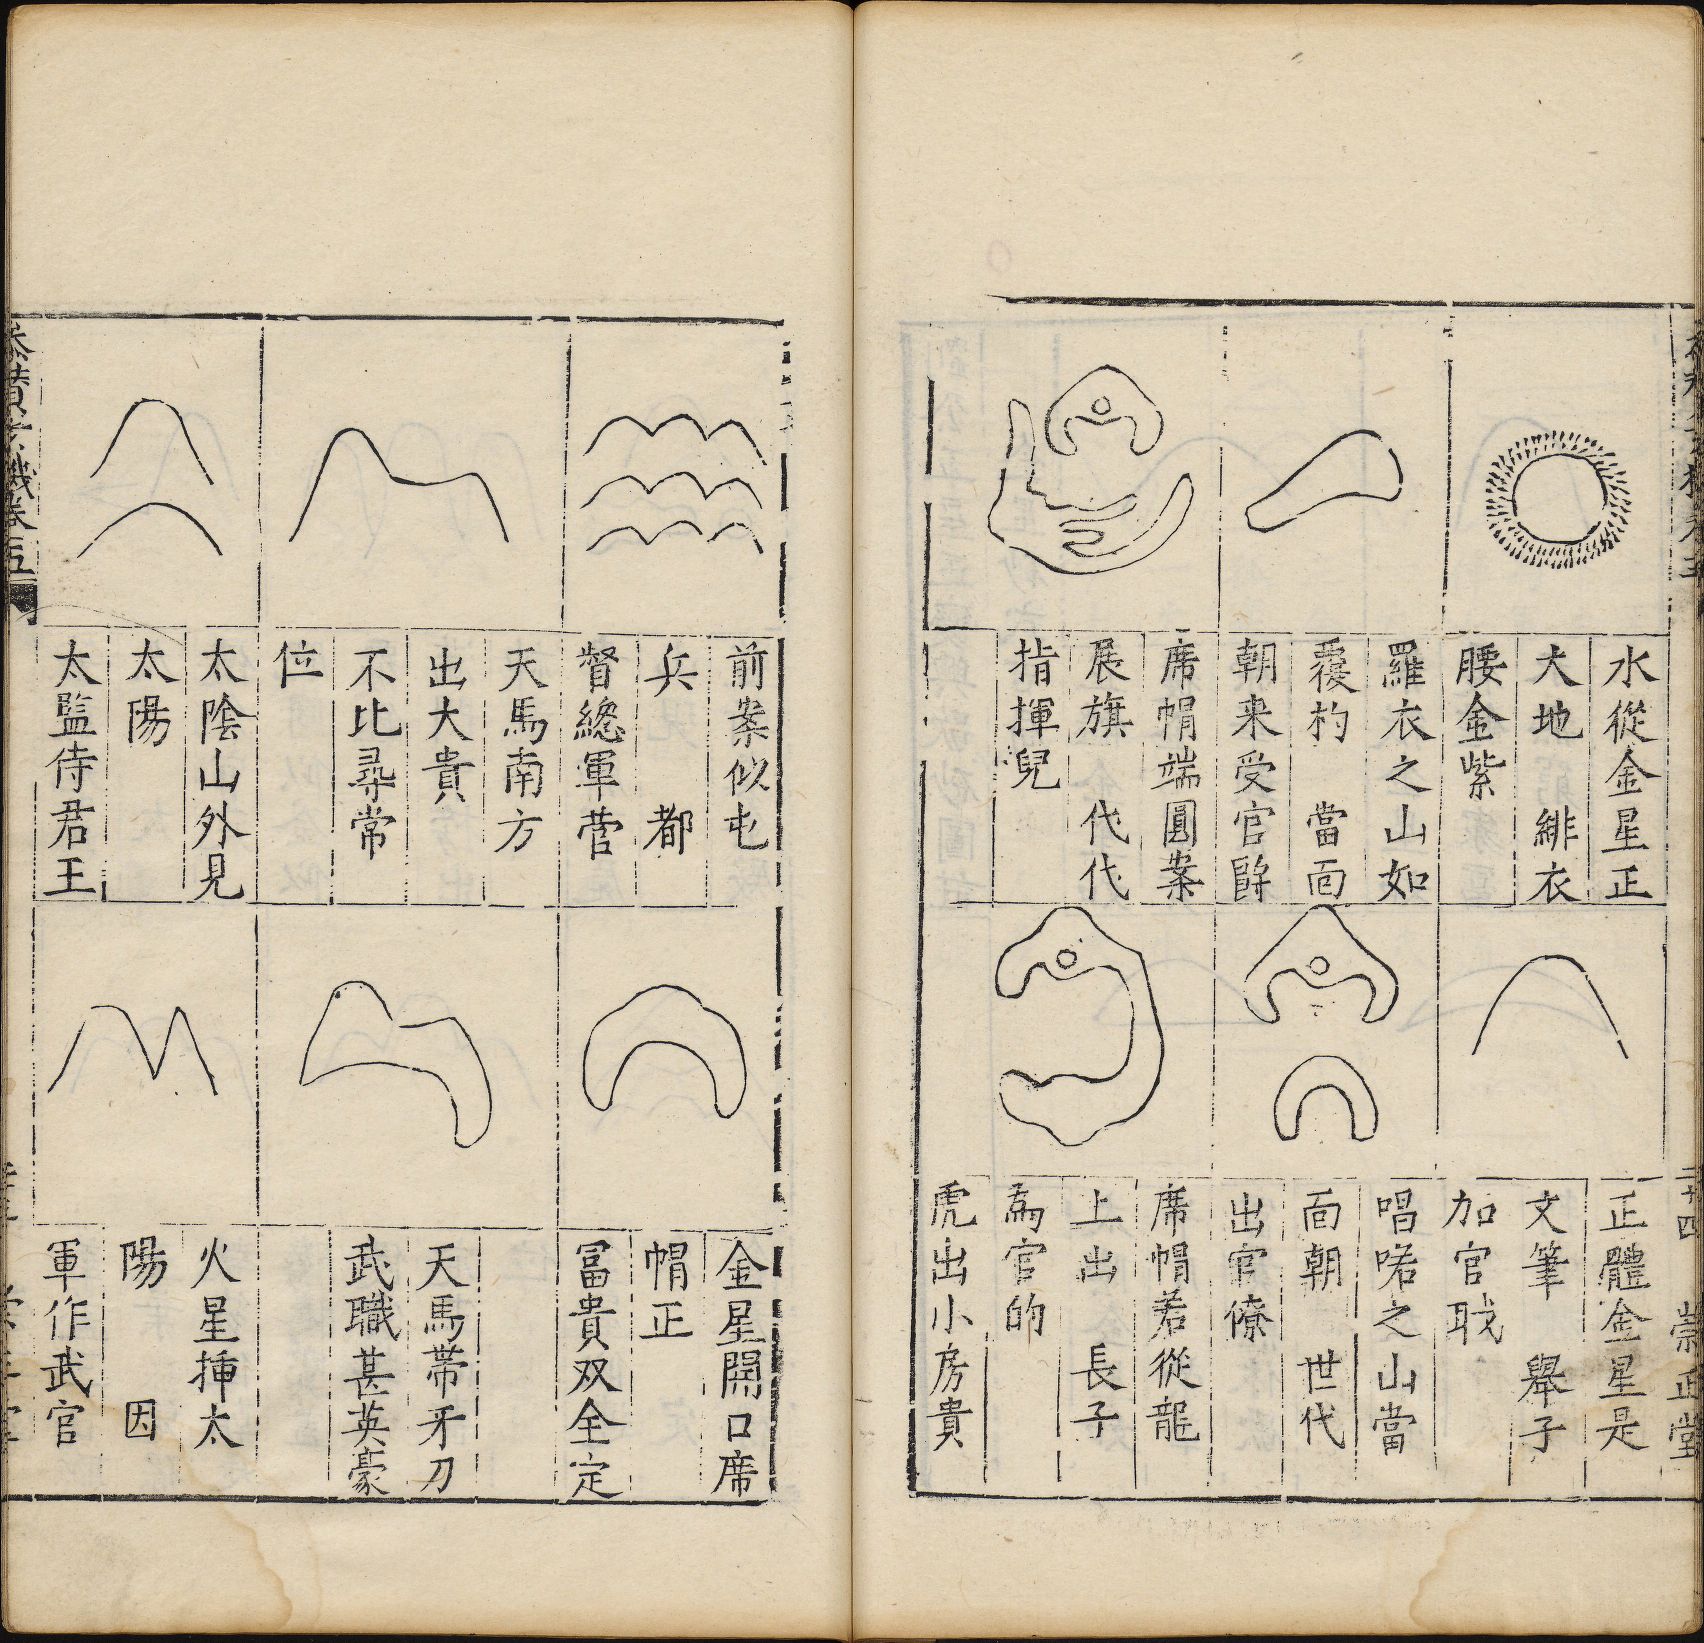 水從金星正
大地　緋衣
腰金紫
羅衣之山如
覆杓　當面
朝来受官爵
席帽端圓案
展旗　代代
指揮兒
正體金星是
文筆　舉子
加官职
唱喏之山當
面朝　世代
出官僚
席帽若從龍
上出　長子
為官的
虎出小房貴
二十四　崇正堂
前案似屯
兵　都
督總軍营
天馬南方
出大貴
不比尋常
位
太陰山外見
太陽
太監侍君王
金星開口席
帽正
冨貴双全定
天馬帯矛刀
武職甚英豪
火星揷太
陽　因
軍作武官